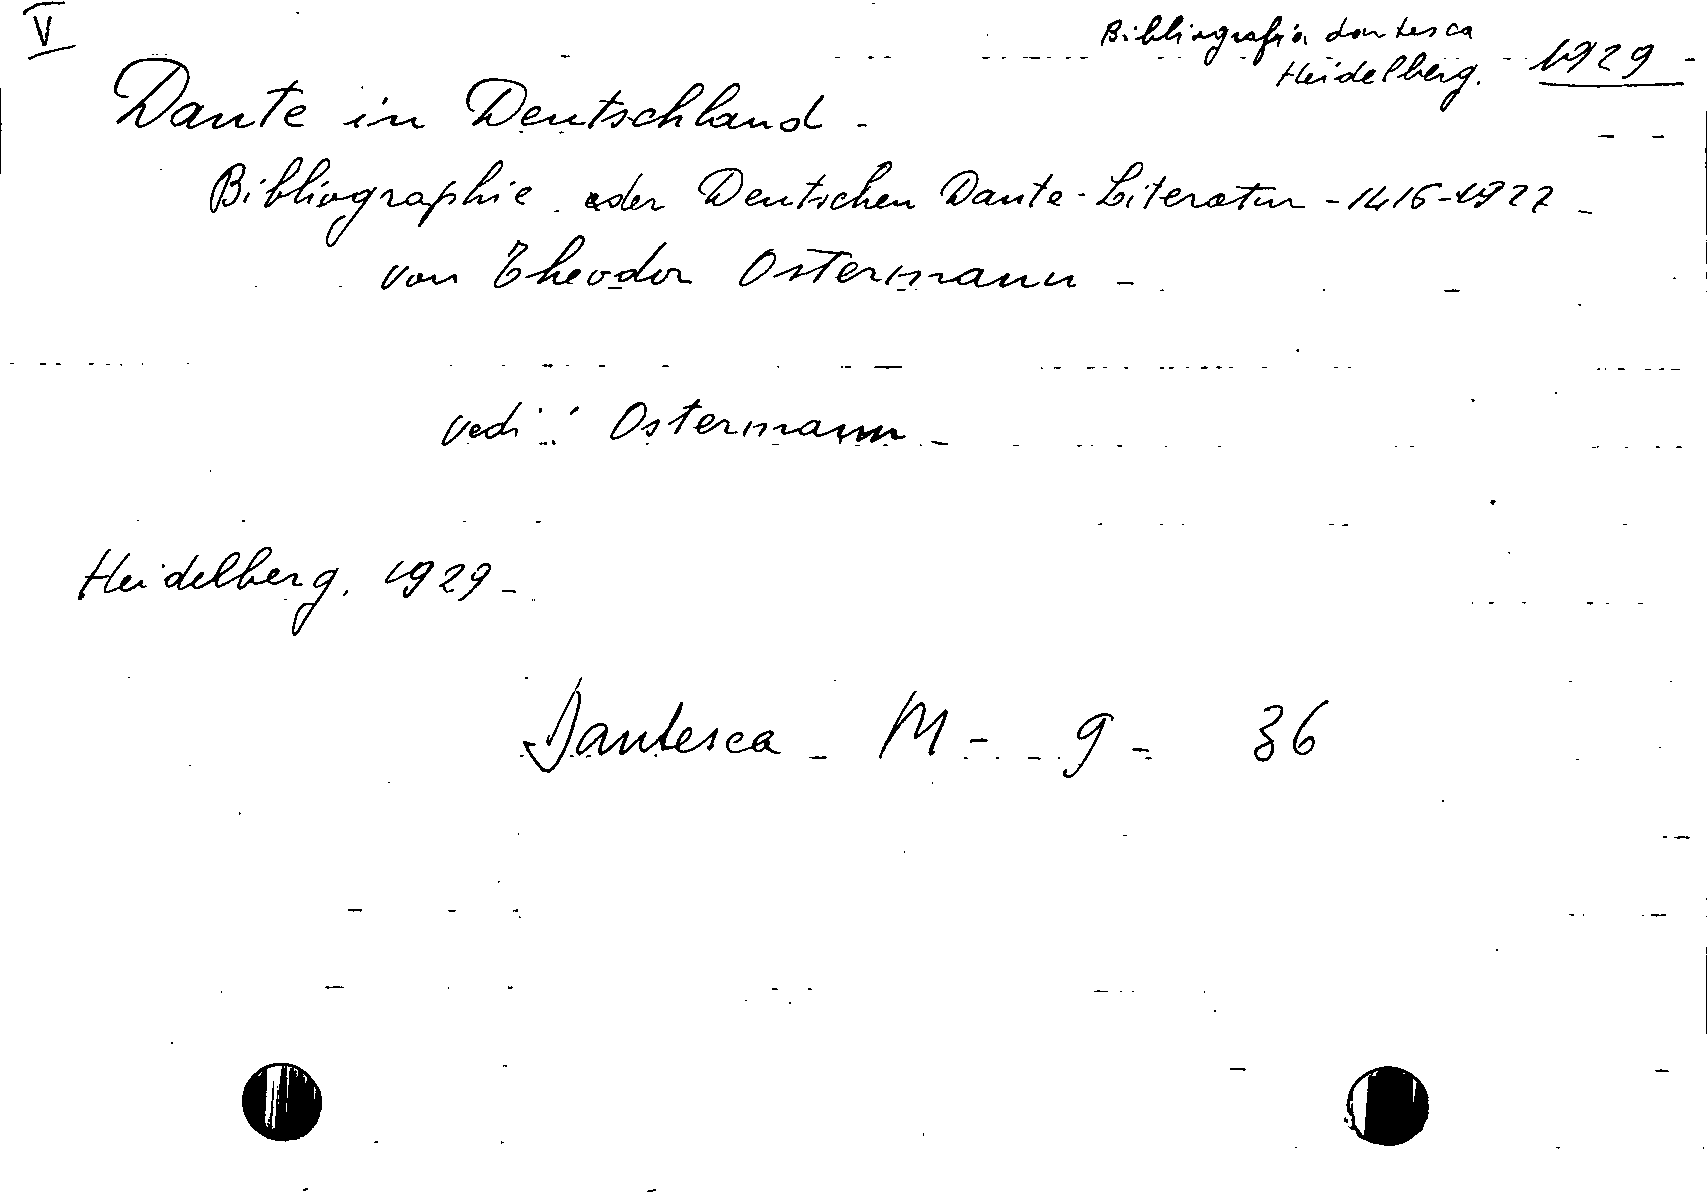 V
Bibliografia dantesca
Heidelberg. 1929
Dante in Deutschland -
Bibliographie der Deutschen Dante-Literatur - 1416-1927 -
von Theodor Ostermann -
vedi: Ostermann -
Heidelberg, 1929 -
Dantesca - M - 9 - 36